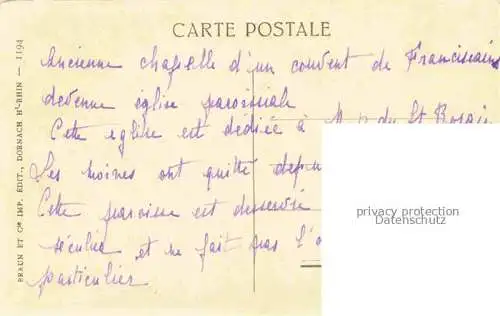 CARTE POSTALE
Ancienne chapelle d'un couvent de Franciscains
devenue église paroissiale
Cette église est dédiée à N. D. du St Rosaire
Les moines ont quitté depu
Cette paroisse est desservie
séculier et ne fait pas l'o
particulier
BRAUN ET Cie IMP. ÉDIT., DORNACH Ht-RHIN — 1194
privacy protection
Datenschutz